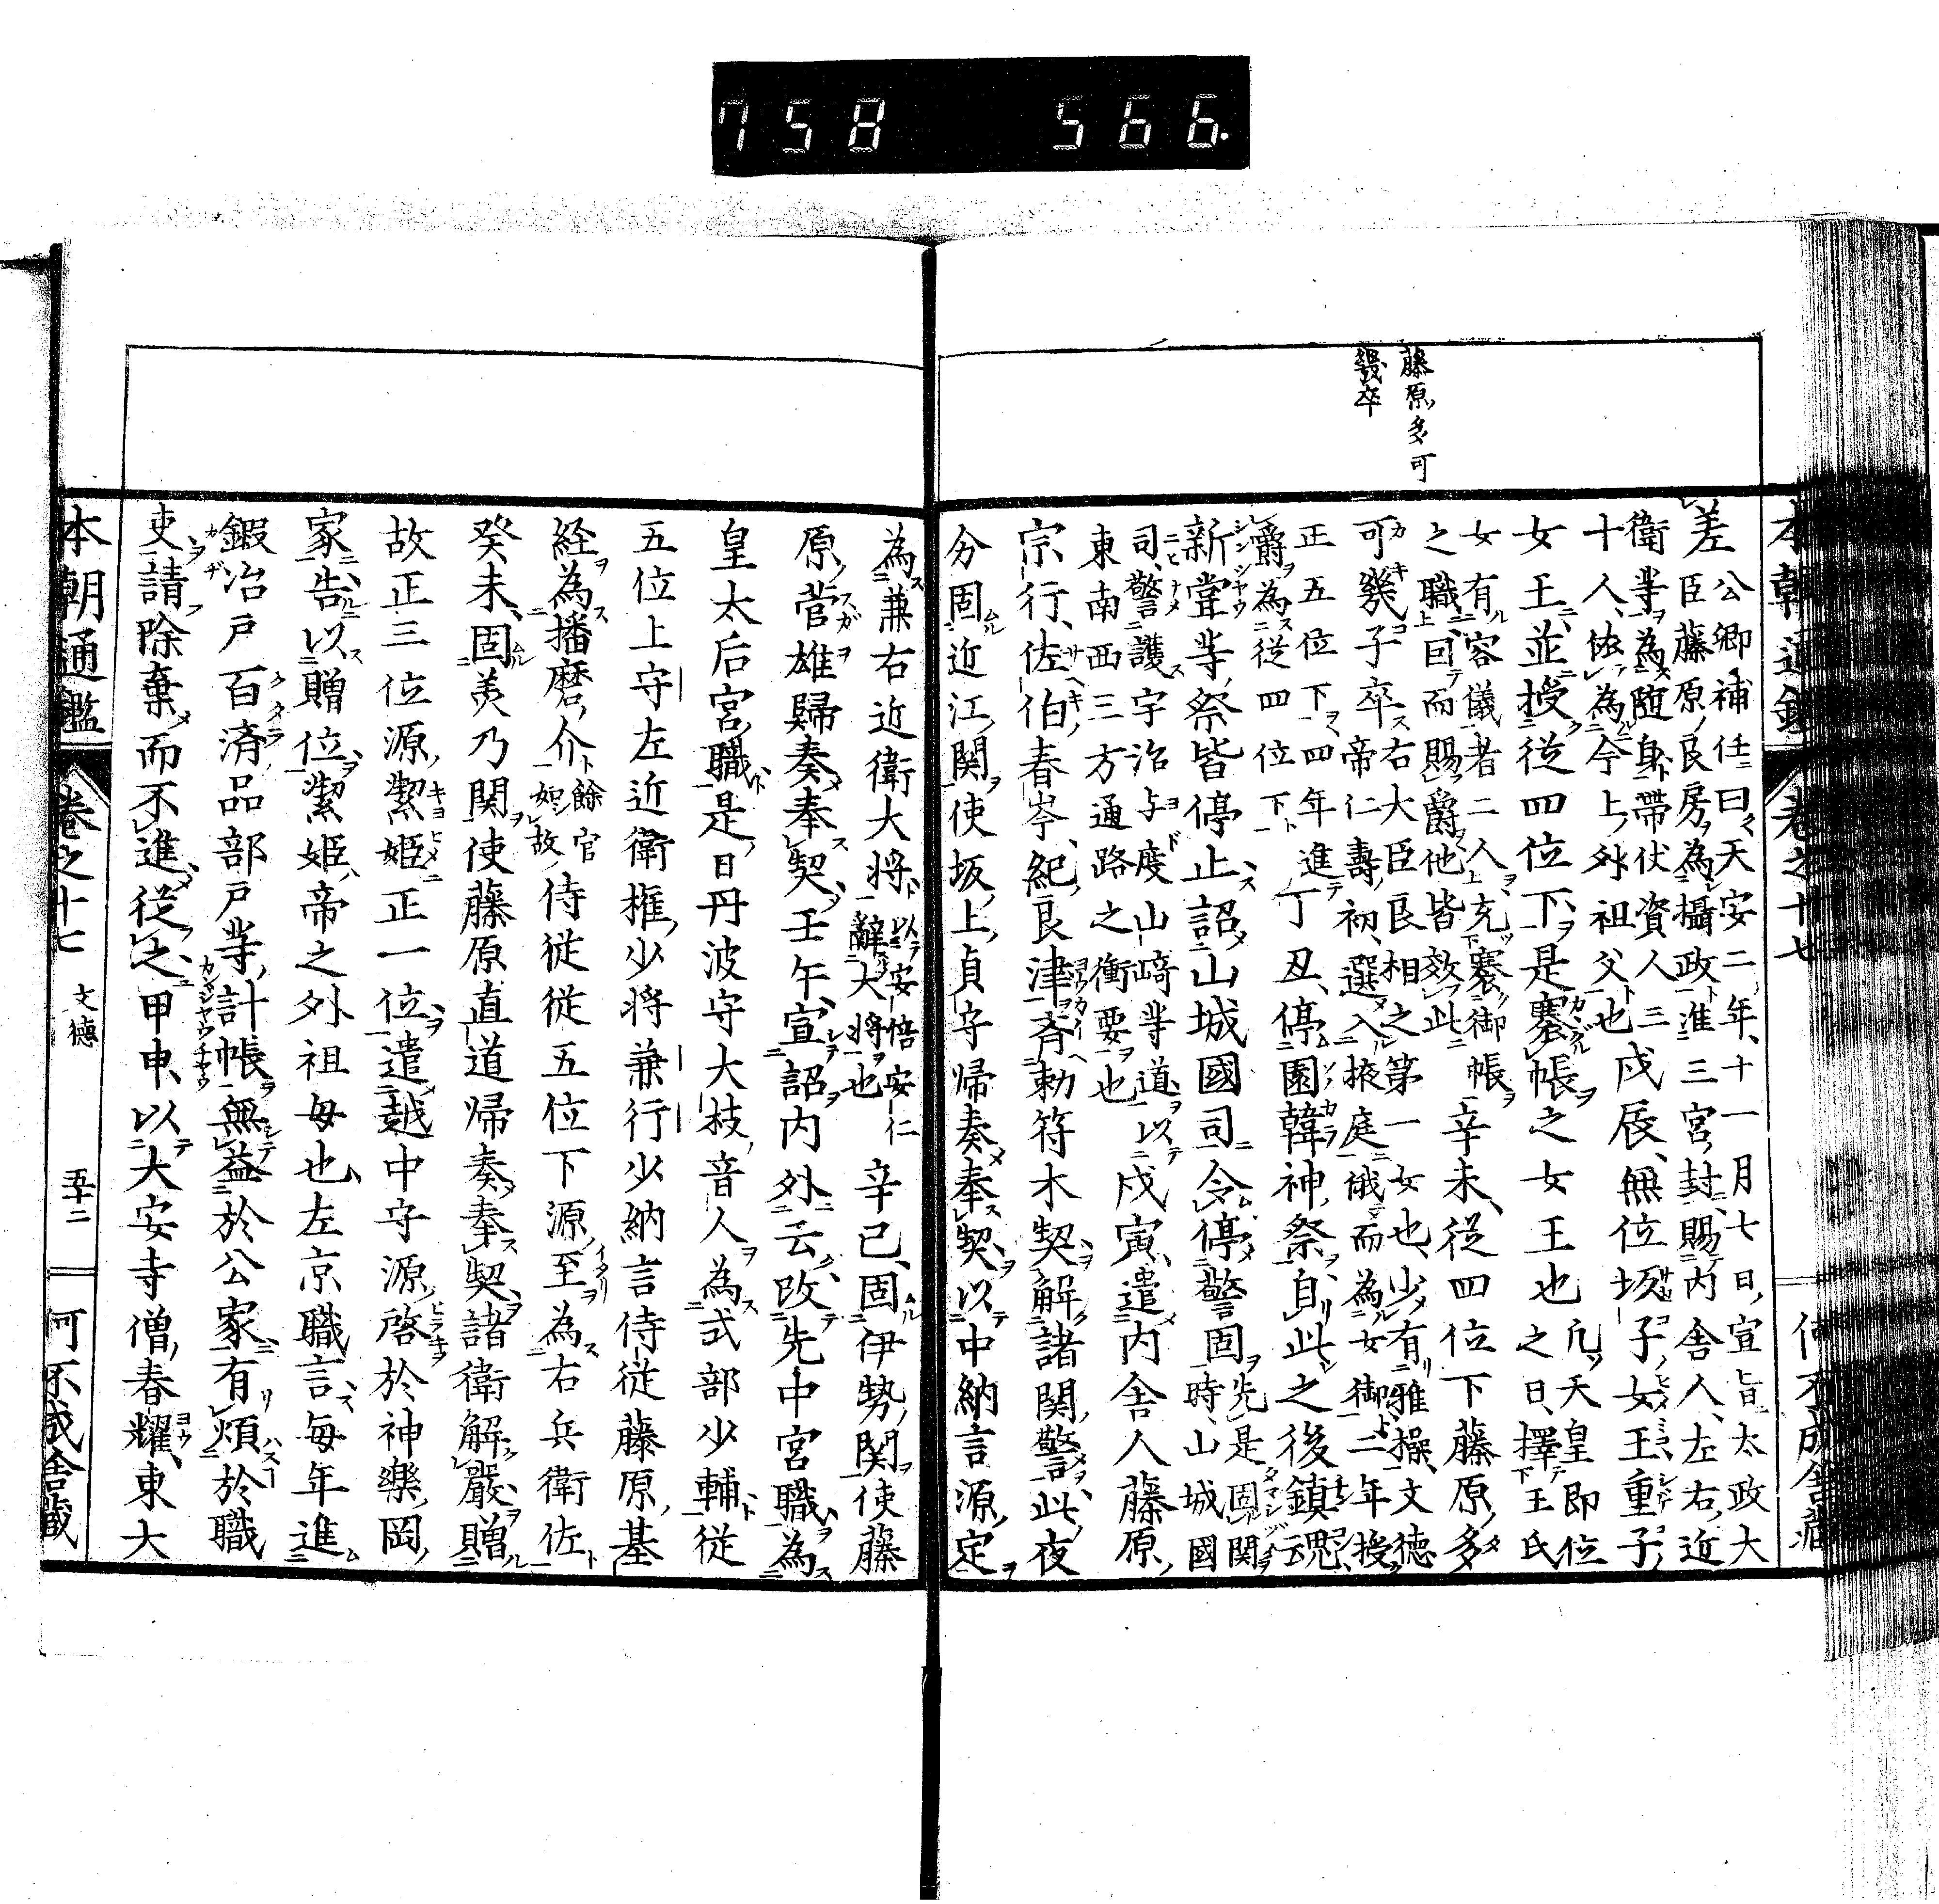 758 566.
藤原多可
幾卒
差公卿補任曰天安二年十一月七日宣旨太政大
臣藤原良房為攝政准三宮封賜内舎人左右近
衛等為随身帶仗資人三
十人依為今上外祖父也戊辰無位坂子女王重子
女王並授從四位下是褰帳之女王也凡天皇即位
之日擇王氏
女有容儀者二人充褰御帳
之職回而賜爵他皆效此辛未從四位下藤原多
可幾子卒右大臣良相之第一女也少有雅操文德
帝仁壽初選入掖庭俄而為女御二年授
正五位下四年進
爵為從四位下丁丑停園韓神祭自此之後鎮魂
新嘗等祭皆停止詔山城國司令停警固先是固関
時山城國
司警護宇治与度山﨑等道以
東南西三方通路之衝要也戊寅遣内舎人藤原
宗行佐伯春岑紀良津斉勅符木契解諸関警此夜
分固近江関使坂上貞守帰奏奉契以中納言源定
為兼右近衛大将以安倍安仁
辭大将也辛已固伊勢関使藤
原菅雄歸奏奉契壬午宣詔内外云改先中宮職為
皇太后宮職是日丹波守大枝音人為式部少輔従
五位上守左近衛権少将兼行少納言侍従藤原基
経為播磨介餘官
如故侍従従五位下源至為右兵衛佐
癸未固美乃関使藤原直道帰奏奉契諸衛解嚴贈
故正三位源潔姫正一位遣越中守源啓於神樂岡
家告以贈位潔姫帝之外祖母也左京職言毎年進
鍜冶戸百済品部戸等計帳無益於公家有煩於職
吏請除棄而不進從之甲申以大安寺僧春耀東大
本朝通鑑 卷之十七 文德 五十二 何不成舎蔵